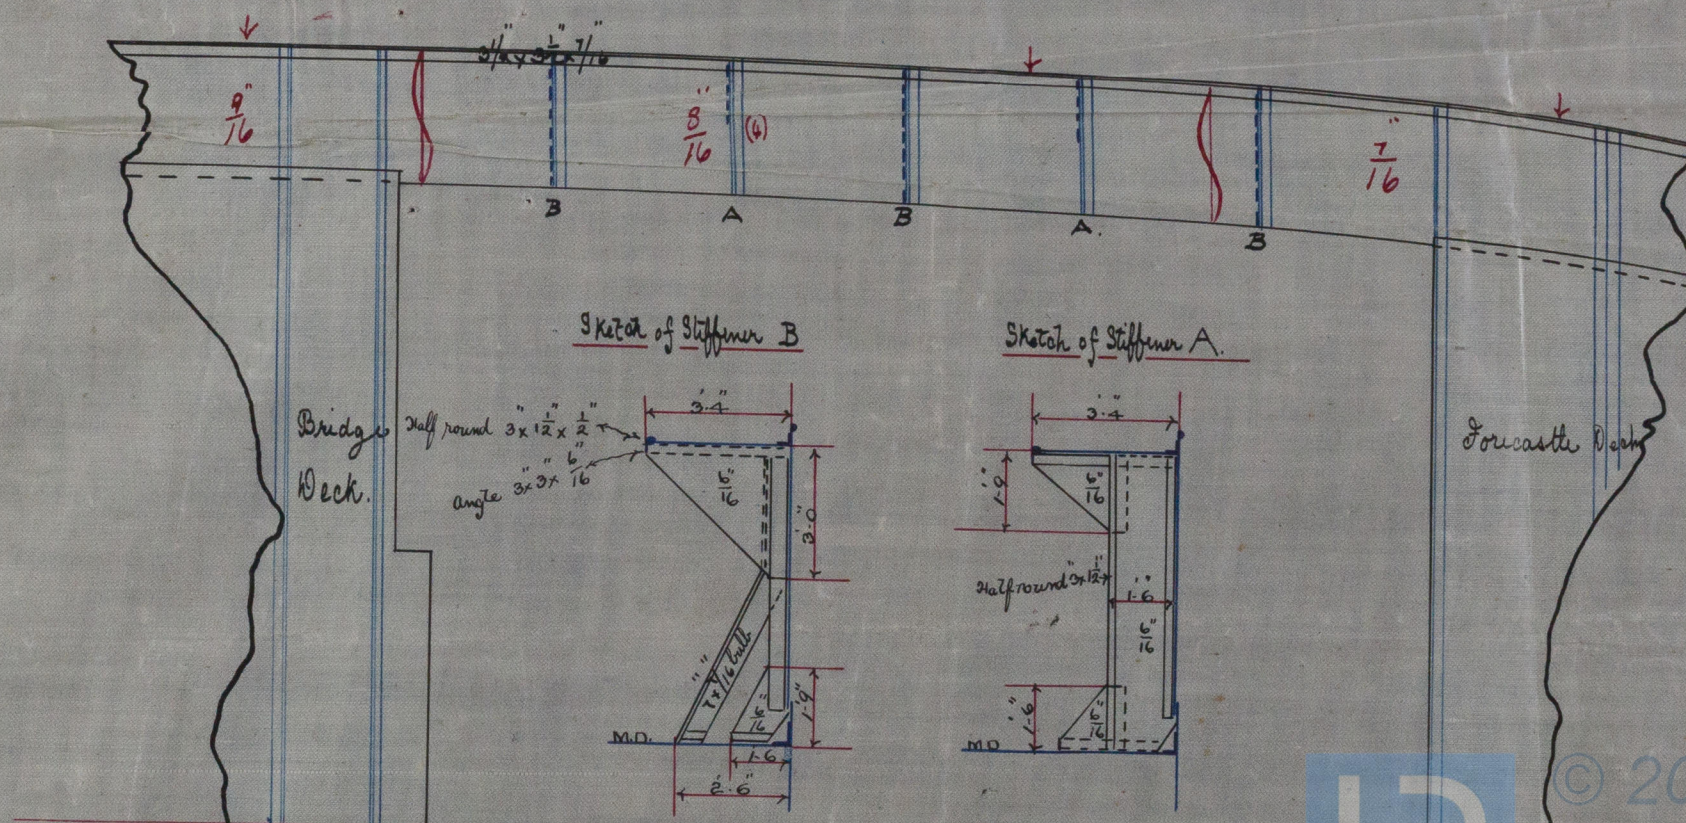 3 1/2" x 3 1/2" x 7/16"
9/16"
8/16" (4)
7/16"
B
A
B
A.
B
Sketch of Stiffener B
Sketch of Stiffener A.
Bridge Deck.
Half round 3" x 1 1/2" x 1/2"
angle 3" x 3" x 6/16"
3'-4"
6/16"
3'-0"
7" x 7/16 bulb
6/16"
1'-9"
M.D.
1-6"
2'-6"
3'-4"
1'-9"
6/16"
Half round 3" x 1 1/2"
1'-6"
6/16"
1'-6"
6/16"
MD
Forecastle Deck
© 20